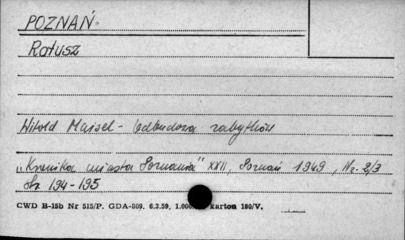 POZNAŃ
Ratusz
Witold Maisel - Odbudowa zabytków
„Kronika miasta Poznania" XXII, Poznań 1949, Nr. 2/3
Str. 194-195
CWD B-15b Nr 515/P. GDA-809. 6.3.59, 1.000 karton 180/V.